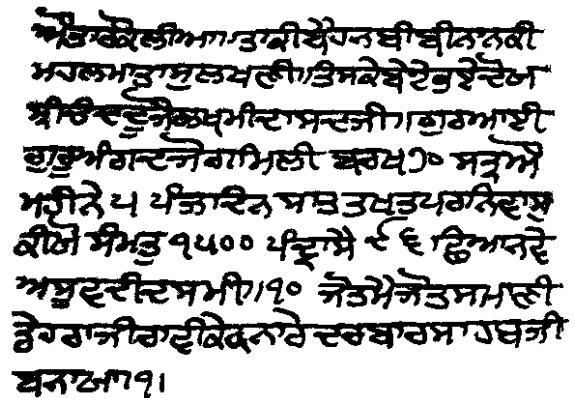 ਬੀਬੀ ਨਾਨਕੀ
ਮਹਲ ਮਾਤਾ ਸੁਲਖਣੀ।ਤਿਸਕੇ ਬੇਟੇ ਹੁਏ
ਸ੍ਰੀਚੰਦ ਦੂਜੈ ਲਖਮੀਦਾਸ ਜੀ।।ਗੁਰਆਈ
ਗੁਰੂ ਅੰਗਦ ਜੋਗ ਮਿਲੀ ਬਰਖ ੭੦ ਸਤ੍ਰ ਐ
ਮਹੀਨੇ ੫ ਪੰਜਾ ਦਿਨ ਸਤ ਤਖਤ ਪਰ ਨਿਵਾਸੁ
ਕੀਓ ਸੰਮਤੁ ੧੫੦੦ ਪੰਦ੍ਰਾਸੈ ੯੬ ਛਿਆਨਵੇ
ਅਸੂ ਵਦੀ ਦਸਮੀ।।੧੦ ਜੋਤ ਮੈ ਜੋਤ ਸਮਾਣੀ
ਡੇਹਰਾ ਜੀ ਰਾਵੀ ਕੇ ਕਨਾਰੇ ਦਰਬਾਰ ਸਾਹਬ ਜੀ
ਬਨਾਓ।।੧।